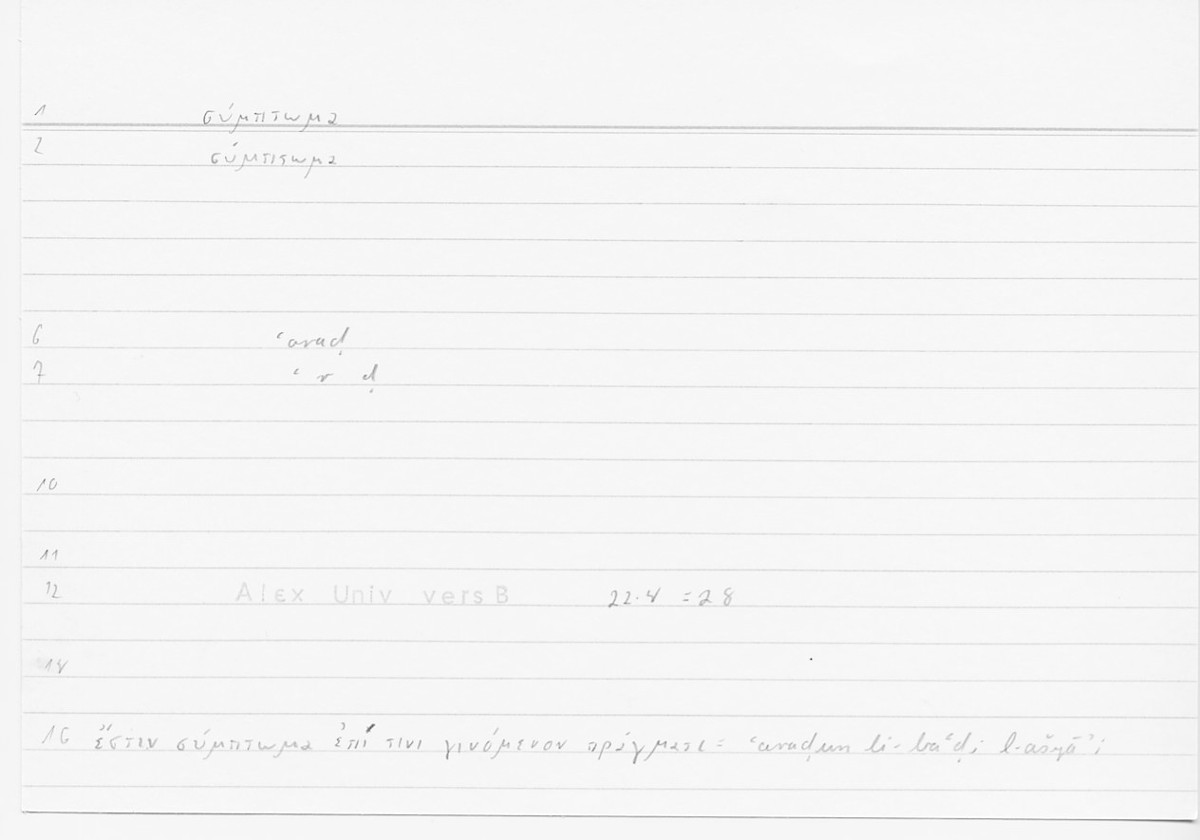 1 σύμπτωμα
2 σύμπτωμα
6 ʿaraḍ
7 ʿ r ḍ
10
11
12 Alex Univ vers B 22.4 = 28
14
16 ἔστιν σύμπτωμα ἐπί τινι γινόμενον πράγματι = ʿaraḍun li-baʿḍi l-ašyāʾi